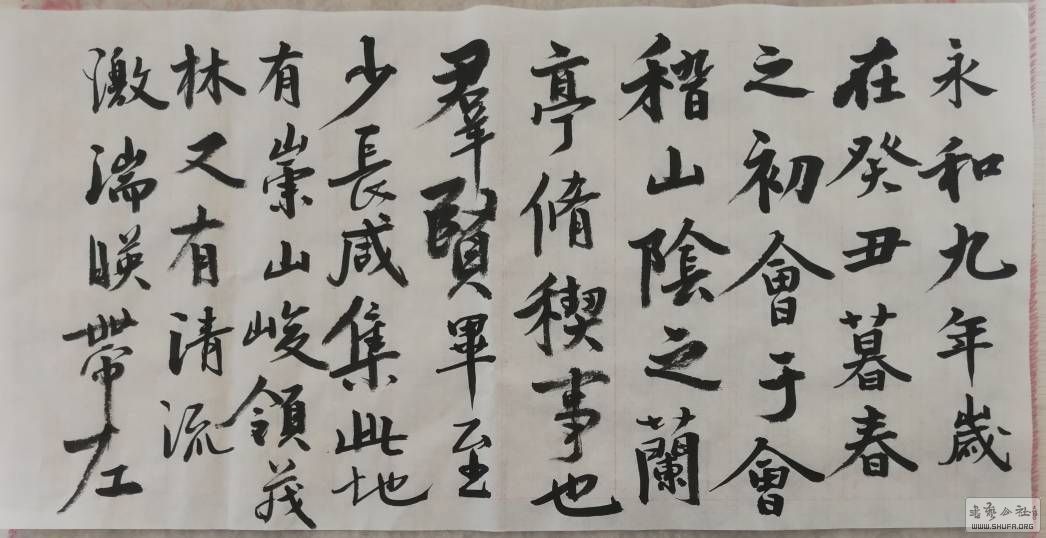 永和九年歲
在癸丑暮春
之初會于會
稽山陰之蘭
亭脩稧事也
羣賢畢至
少長咸集此地
有崇山峻領茂
林又有清流
激湍暎帶左
书艺公社
WWW.SHUFA.ORG